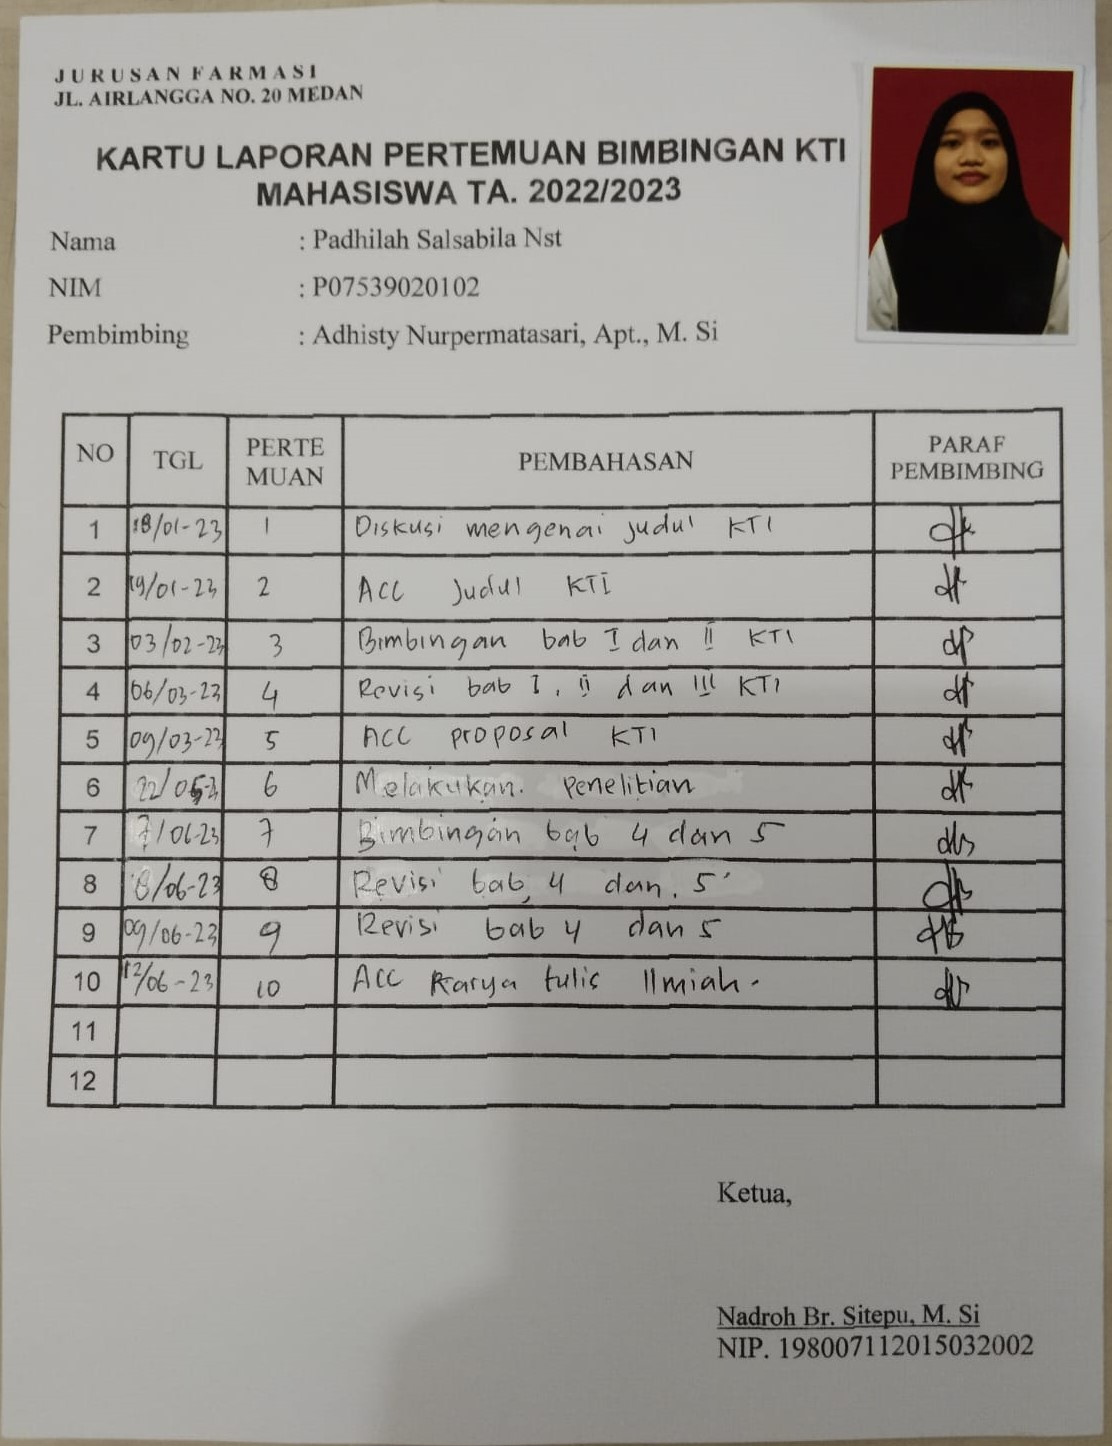 JURUSAN FARMASI
JL. AIRLANGGA NO. 20 MEDAN
KARTU LAPORAN PERTEMUAN BIMBINGAN KTI
MAHASISWA TA. 2022/2023
Nama : Padhilah Salsabila Nst
NIM : P07539020102
Pembimbing : Adhisty Nurpermatasari, Apt., M. Si
NO TGL PERTE MUAN PEMBAHASAN PARAF PEMBIMBING
1 18/01-23 1 Diskusi mengenai judul KTI
2 19/01-23 2 Acc Judul KTI
3 03/02-23 3 Bimbingan bab I dan II KTI
4 06/03-23 4 Revisi bab I, II dan III KTI
5 09/03-23 5 Acc proposal KTI
6 6 Melakukan. penelitian
7 7/06-23 7 Bimbingan bab 4 dan 5
8 8/06-23 8 Revisi bab 4 dan. 5
9 09/06-23 9 Revisi bab 4 dan 5
10 12/06-23 10 Acc Karya tulis Ilmiah.
11
12
Ketua,
Nadroh Br. Sitepu, M. Si
NIP. 198007112015032002